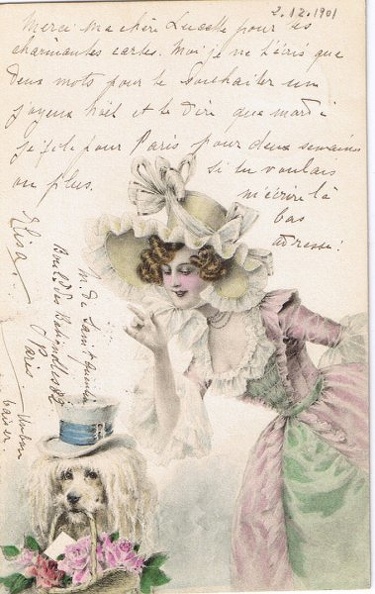 2.12.1901
Merci ma chère Lucette pour tes
charmantes cartes. Moi je ne t'écris que
deux mots pour te souhaiter un
joyeux noël et te dire que mardi
je file pour Paris pour deux semaines
ou plus. si tu voulais
m'écrire là
bas
adresse:
M. de Saint Quentin
Boul. des Batignolles 82
Paris
Un bon
baiser.
Elisa